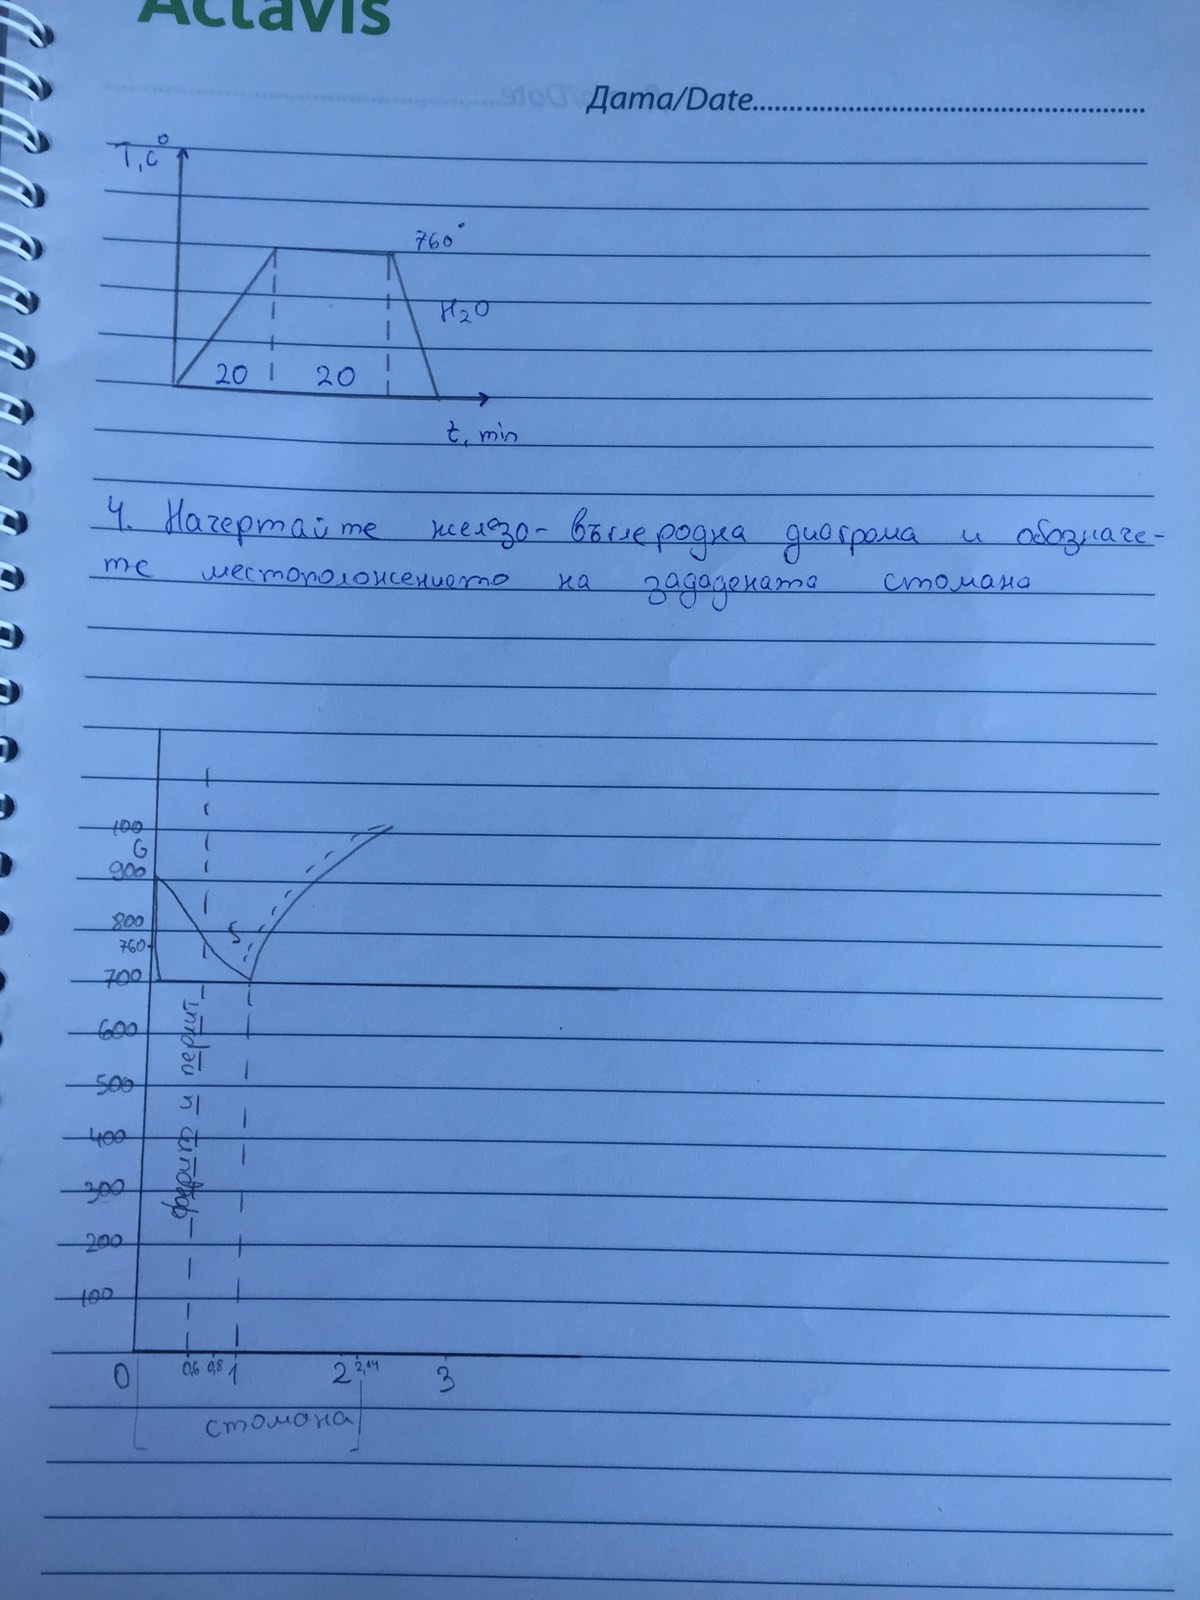 Actavis
Дата/Date
T, c°
760°
H2O
20 20
t, min
4. Начертайте желязо-въглеродна диаграма и обозначе-
те местоположението на зададената стомана
100
G
900
800
S
760
700
600
500
400
300
200
100
ферит и перлит
0 0,6 0,8 1 2 2,14 3
стомана